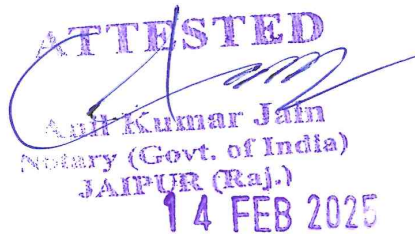 ATTESTED
Anil Kumar Jain
Notary (Govt. of India)
JAIPUR (Raj.)
14 FEB 2025